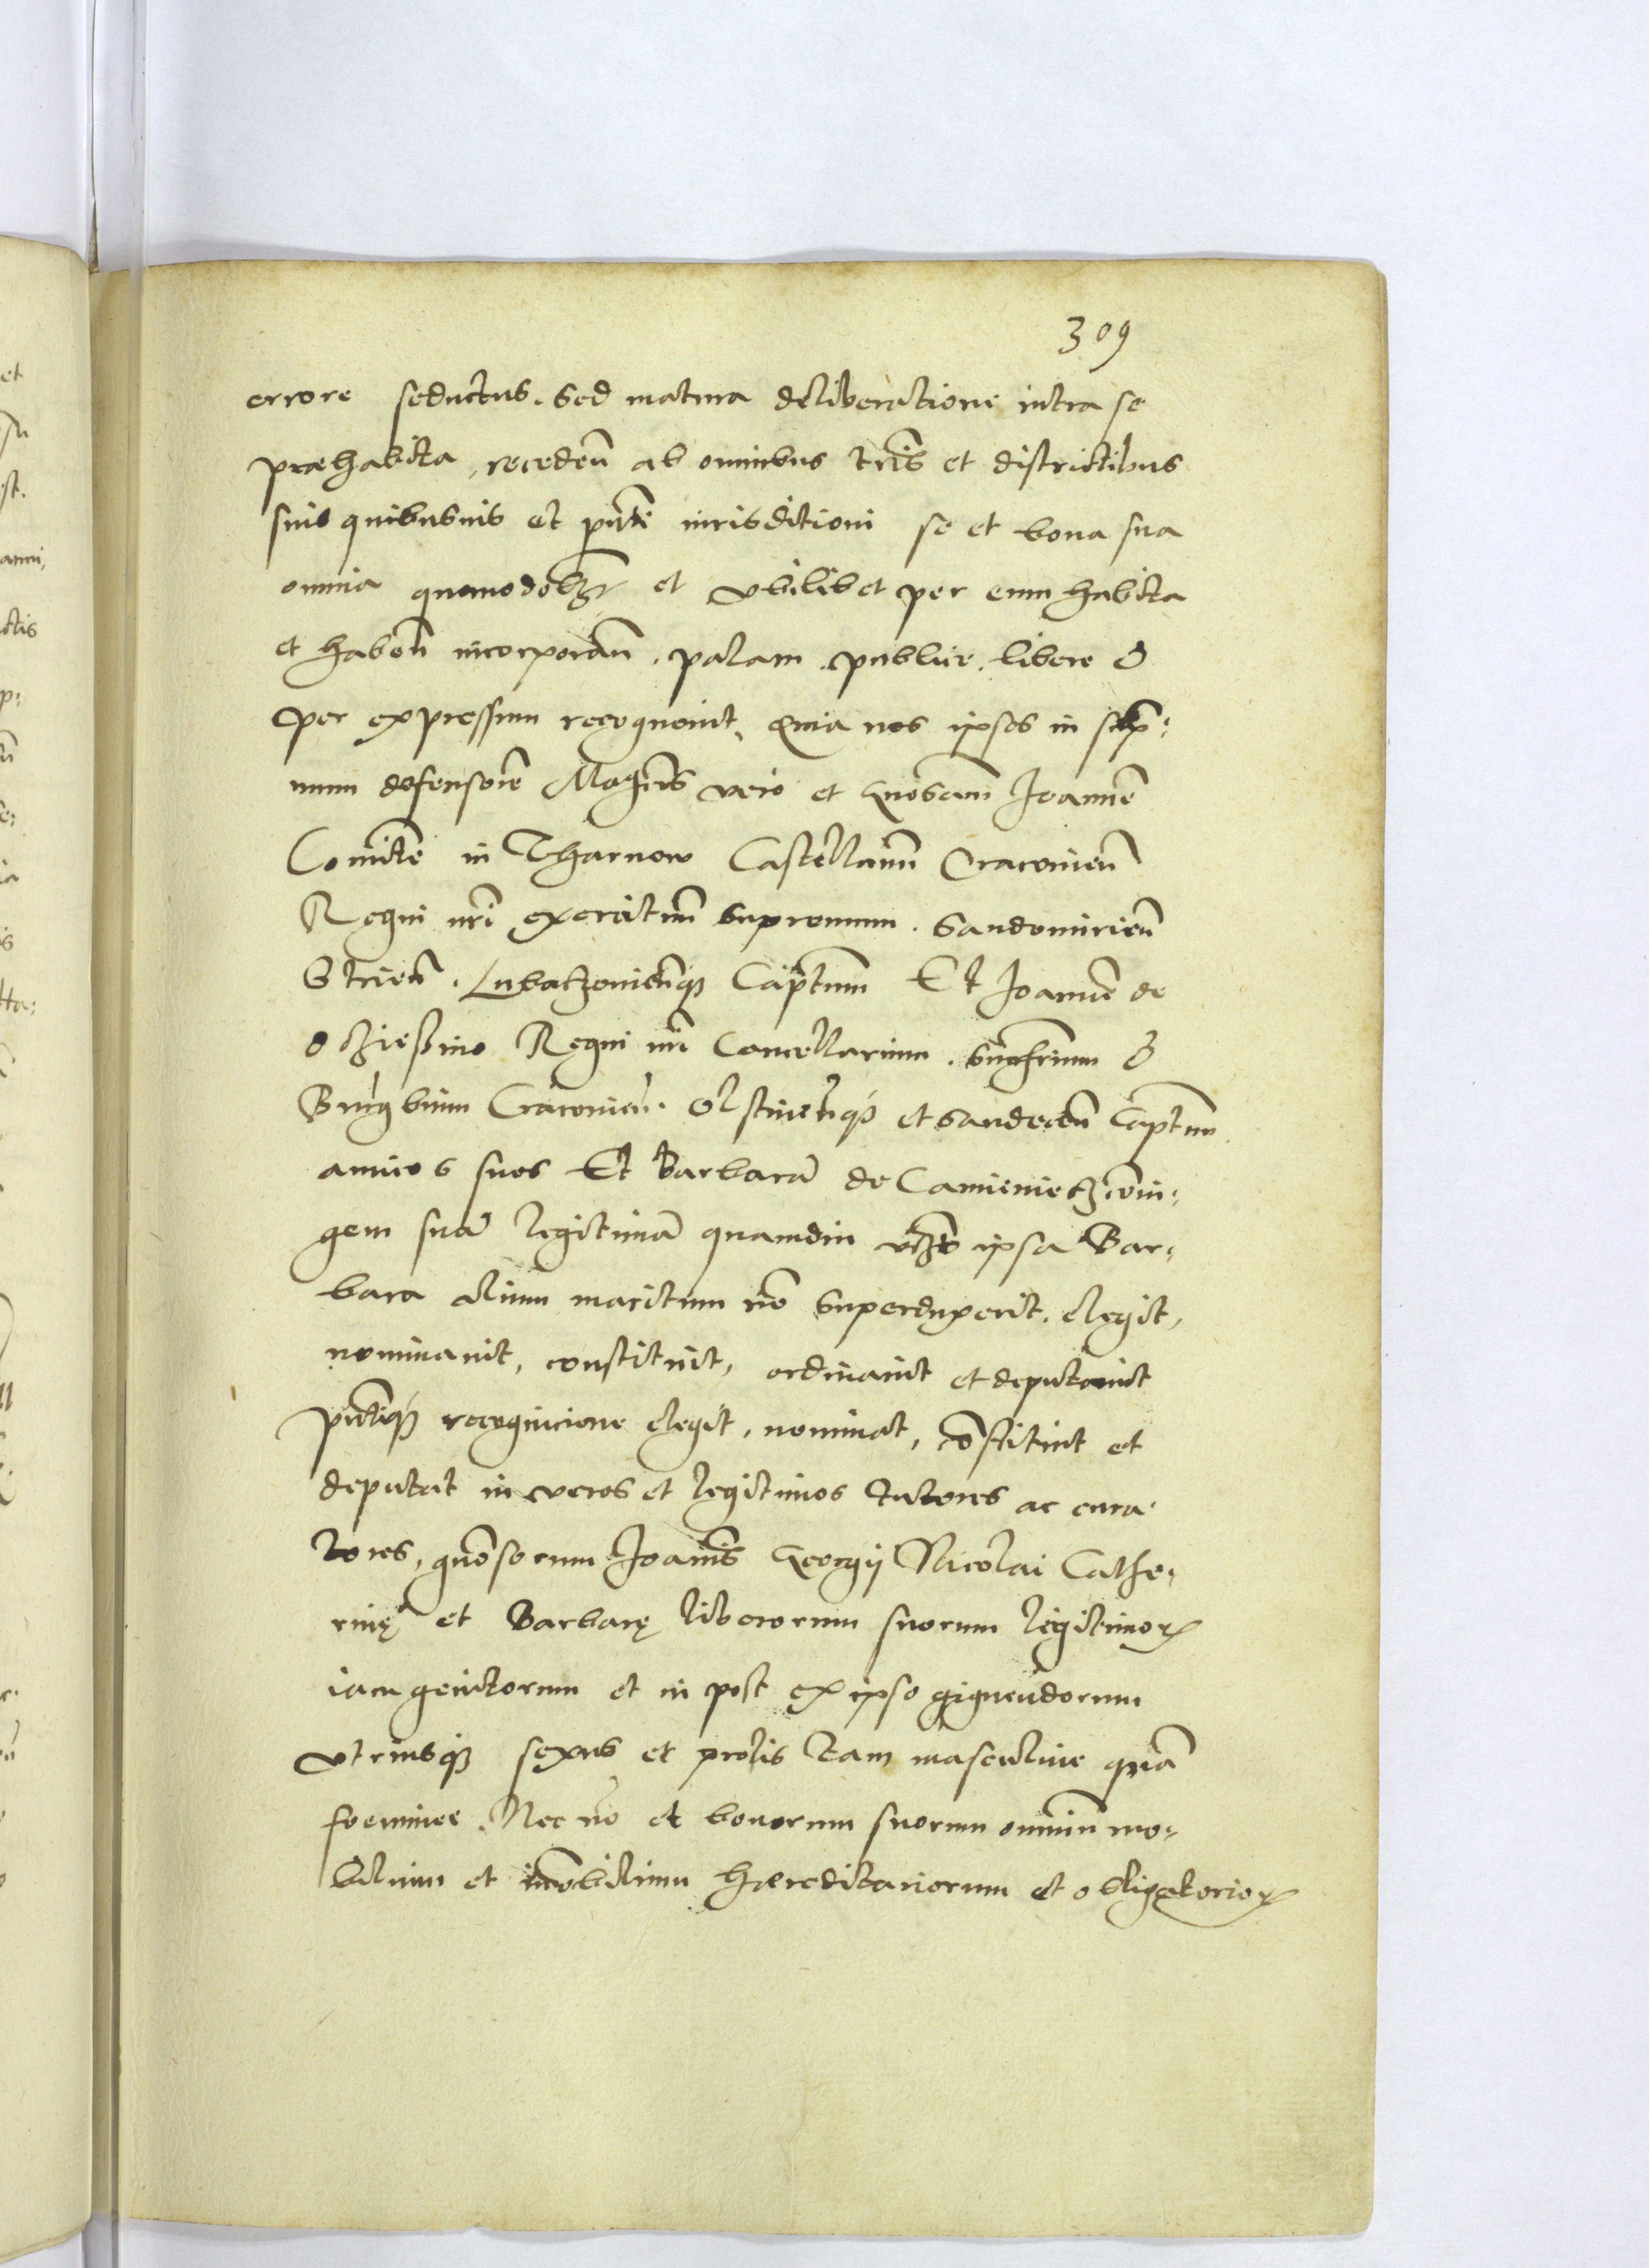 309
errore seductus. Sed matura deliberatione intra se
præhabita, recedeñ ab omnibus tr̃is et districtibus
suis quibusuis et pñti iurisditioni se et bona sua
omnia quomodolꝫ et vbilibet per eum habita
et habeñ incorporañ. palam. publice. libere &
per expressum recognouit, Quia nos ipsos in sup̃⸗
mum defensorẽ Mag̃cos vero et Gñosam̃ Joannẽ
Comitẽ in Tharnow Castellanũ Cracovieñ
Regni nr̃i exercituũ supremum. Sandomirieñ
Strieñ. Lubaczouieñqꝫ Capt̃um Et Joannẽ de
Oczieschino Regni nr̃i Cancellarium.
Burgbium Cracovieñ. Olstineñqꝫ et Sandeceñ Capt̃um
amicos suos Et Barbarã de Camienietz cõiu⸗
gem suã legitimã quamdiu ipsa Bar⸗
bara alium maritum nõ superduxerit. elegit,
nominauit, constituit, ordinauit et deputauit
pñtiqꝫ recognicione elegit, nominat, cõstituit et
deputat in veros et legitimos tutores ac cura
tores, gñosorum Joañis Georgij Nicolai Cathe⸗
rinę et Barbarę liberorum suorum legitimoꝝ
iam genitorum et in post ex ipso gignendorum
vtriusqꝫ sexus et prolis tam masculine quã
foeminee. Nec nõ et bonorum suorum omniũ mo⸗
bilium et im̃obilium hæreditariorum et obligatorioꝝ